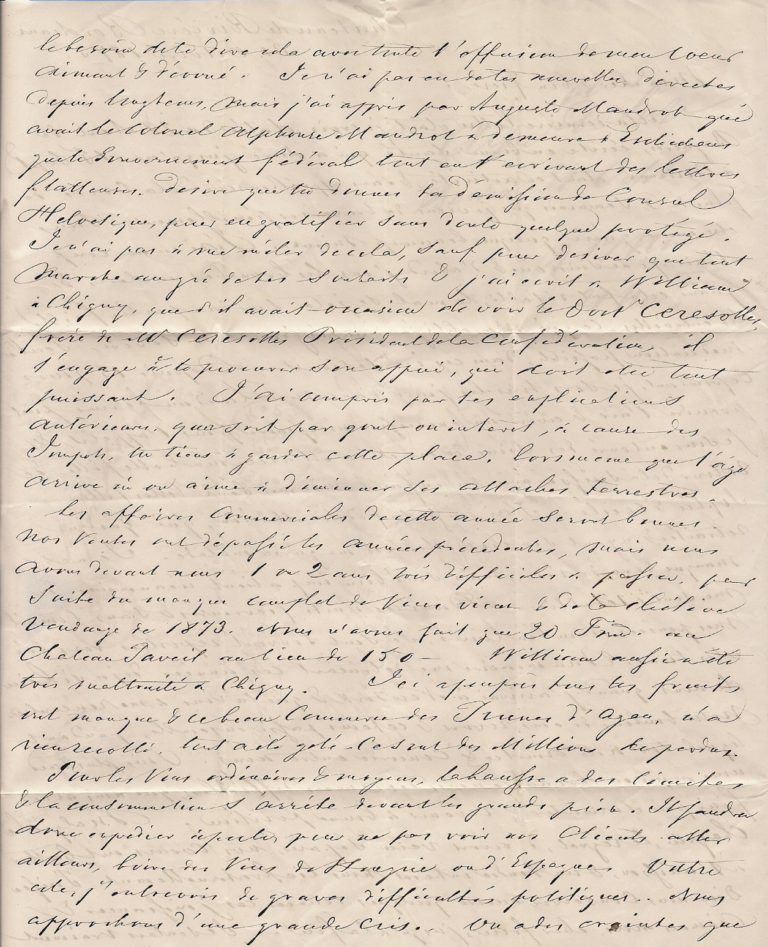 le besoin de te dire cela avec toute l'effusion de mon coeur
aimant & dévoué. Je n'ai pas eu de tes nouvelles directes
depuis longtems, mais j'ai appris par Auguste Mandrot que
avait le Colonel Alphonse Mandrot à demeure à
que le Gouvernement fédéral tout en t'écrivant des lettres
flatteuses. desire que tu donnes ta démission de Consul
Helvetique, pour en gratifier sans doute quelque protégé.
Je n'ai pas à me mêler de cela, sauf pour desirer que tout
marche au gré de tes souhaits & j'ai écrit à William
à Chigny, que s'il avait occasion de voir le Doct Ceresolles,
frère de Mr Ceresolles Président de la Confédération, il
s'engage à te procurer son appui, qui doit etre tout
puissant. J'ai compris par tes explications
antérieures, que soit par gout ou interet, à cause des
Impots, tu tiens à garder cette place. lors meme que l'âge
arrive où on aime à diminuer ses attaches terrestres.
Les affaires Commerciales de cette année seront bonnes
nos Ventes ont dépassé les années précédentes, mais nous
avons devant nous 1 ou 2 ans très difficiles à passer, par
suite du manque complet de Vins vieux & de la chétive
Vendange de 1873. Nous n'avons fait que 20 Ton. au
Chateau Paveil au lieu de 150 — William aussi a été
très maltraité à Chigny. Ici apeuprès tous les fruits
ont manqué & ce beau Commerce des Prunes d'Agen, n'a
rien recolté. tout a été gelé. Ce sont des Millions de perdus.
Pour les Vins ordinaires & moyens, la hausse a des limites
& la consommation s'arrête devant les grands prix. Il faudra
donc expédier à perte, pour ne pas voir nos Clients aller
ailleurs, boire des Vins de Hongrie ou d'Espagne Outre
cela, j'entrevois de graves difficultés politiques.. Nous
approchons d'une grande Crise. On a des craintes que